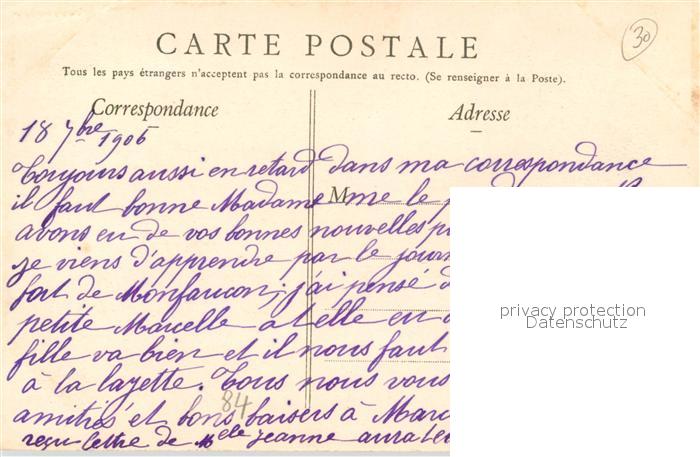 30
CARTE POSTALE
Tous les pays étrangers n'acceptent pas la correspondance au recto. (Se renseigner à la Poste).
Correspondance
Adresse
18 7bre 1906
Toujours aussi en retard dans ma correspondance
il faut bonne Madame me le
M
avons eu de vos bonnes nouvelles
je viens d'apprendre par le journ
fort de Monfaucon; j'ai pensé
petite Marcelle a t elle eu
fille va bien et il nous faut
à la layette. Tous nous vous
amitiés et bons baisers à Marc
reçu lettre de Melle jeanne
84
privacy protection
Datenschutz